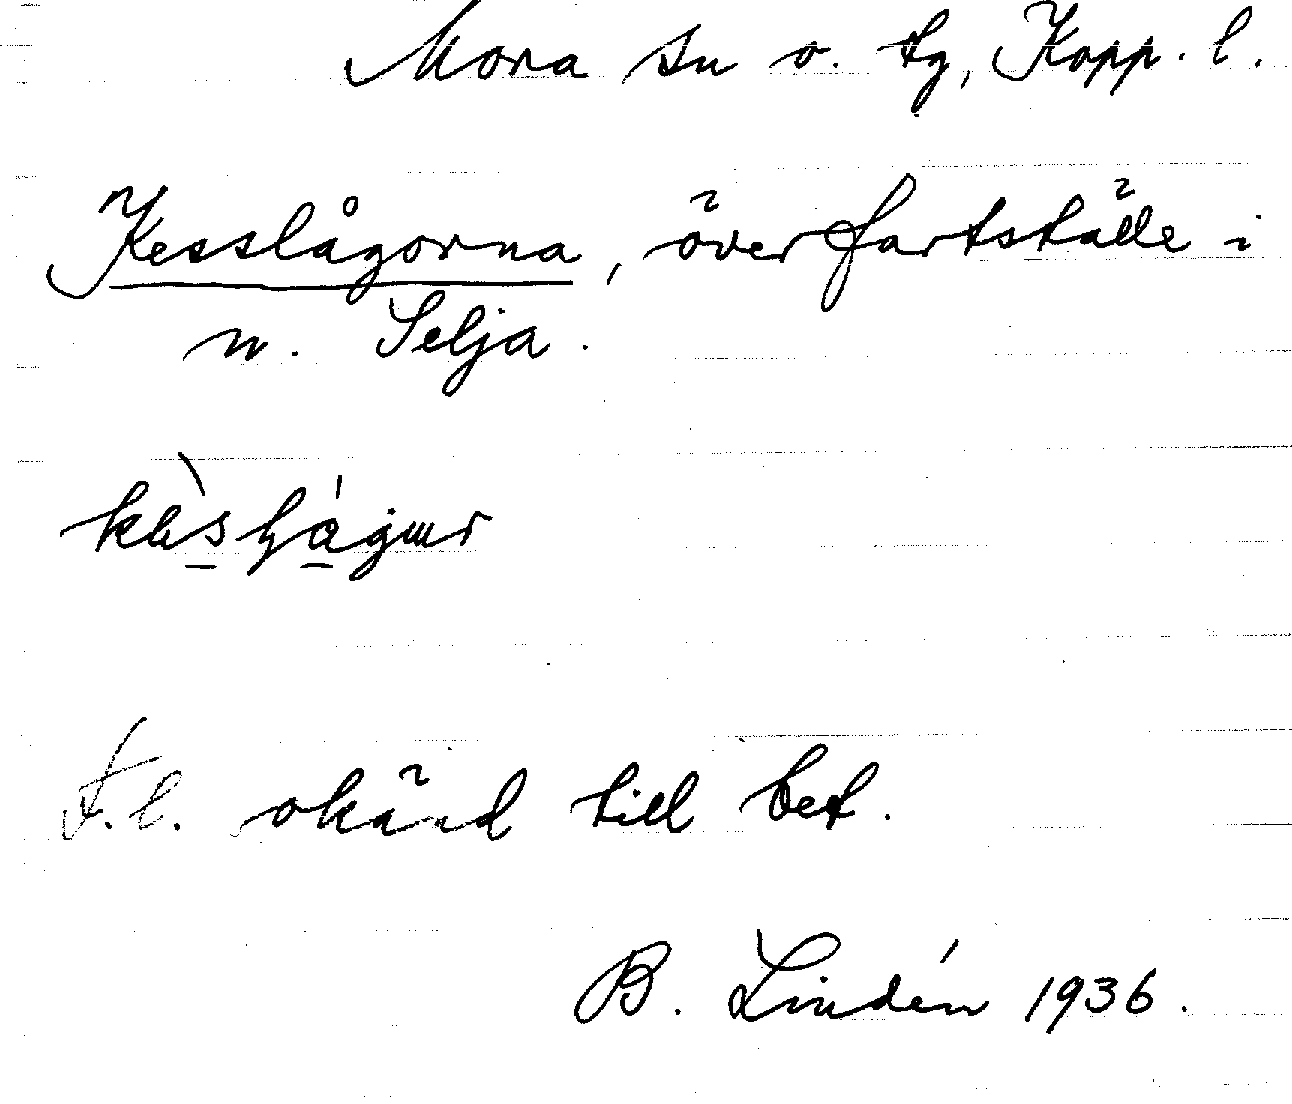 Mora sn o. tg, Kopp. l.
Kesslågorna, överfartställe i
n. Selja.
f.l. okänd till bet.
B. Lindén 1936.